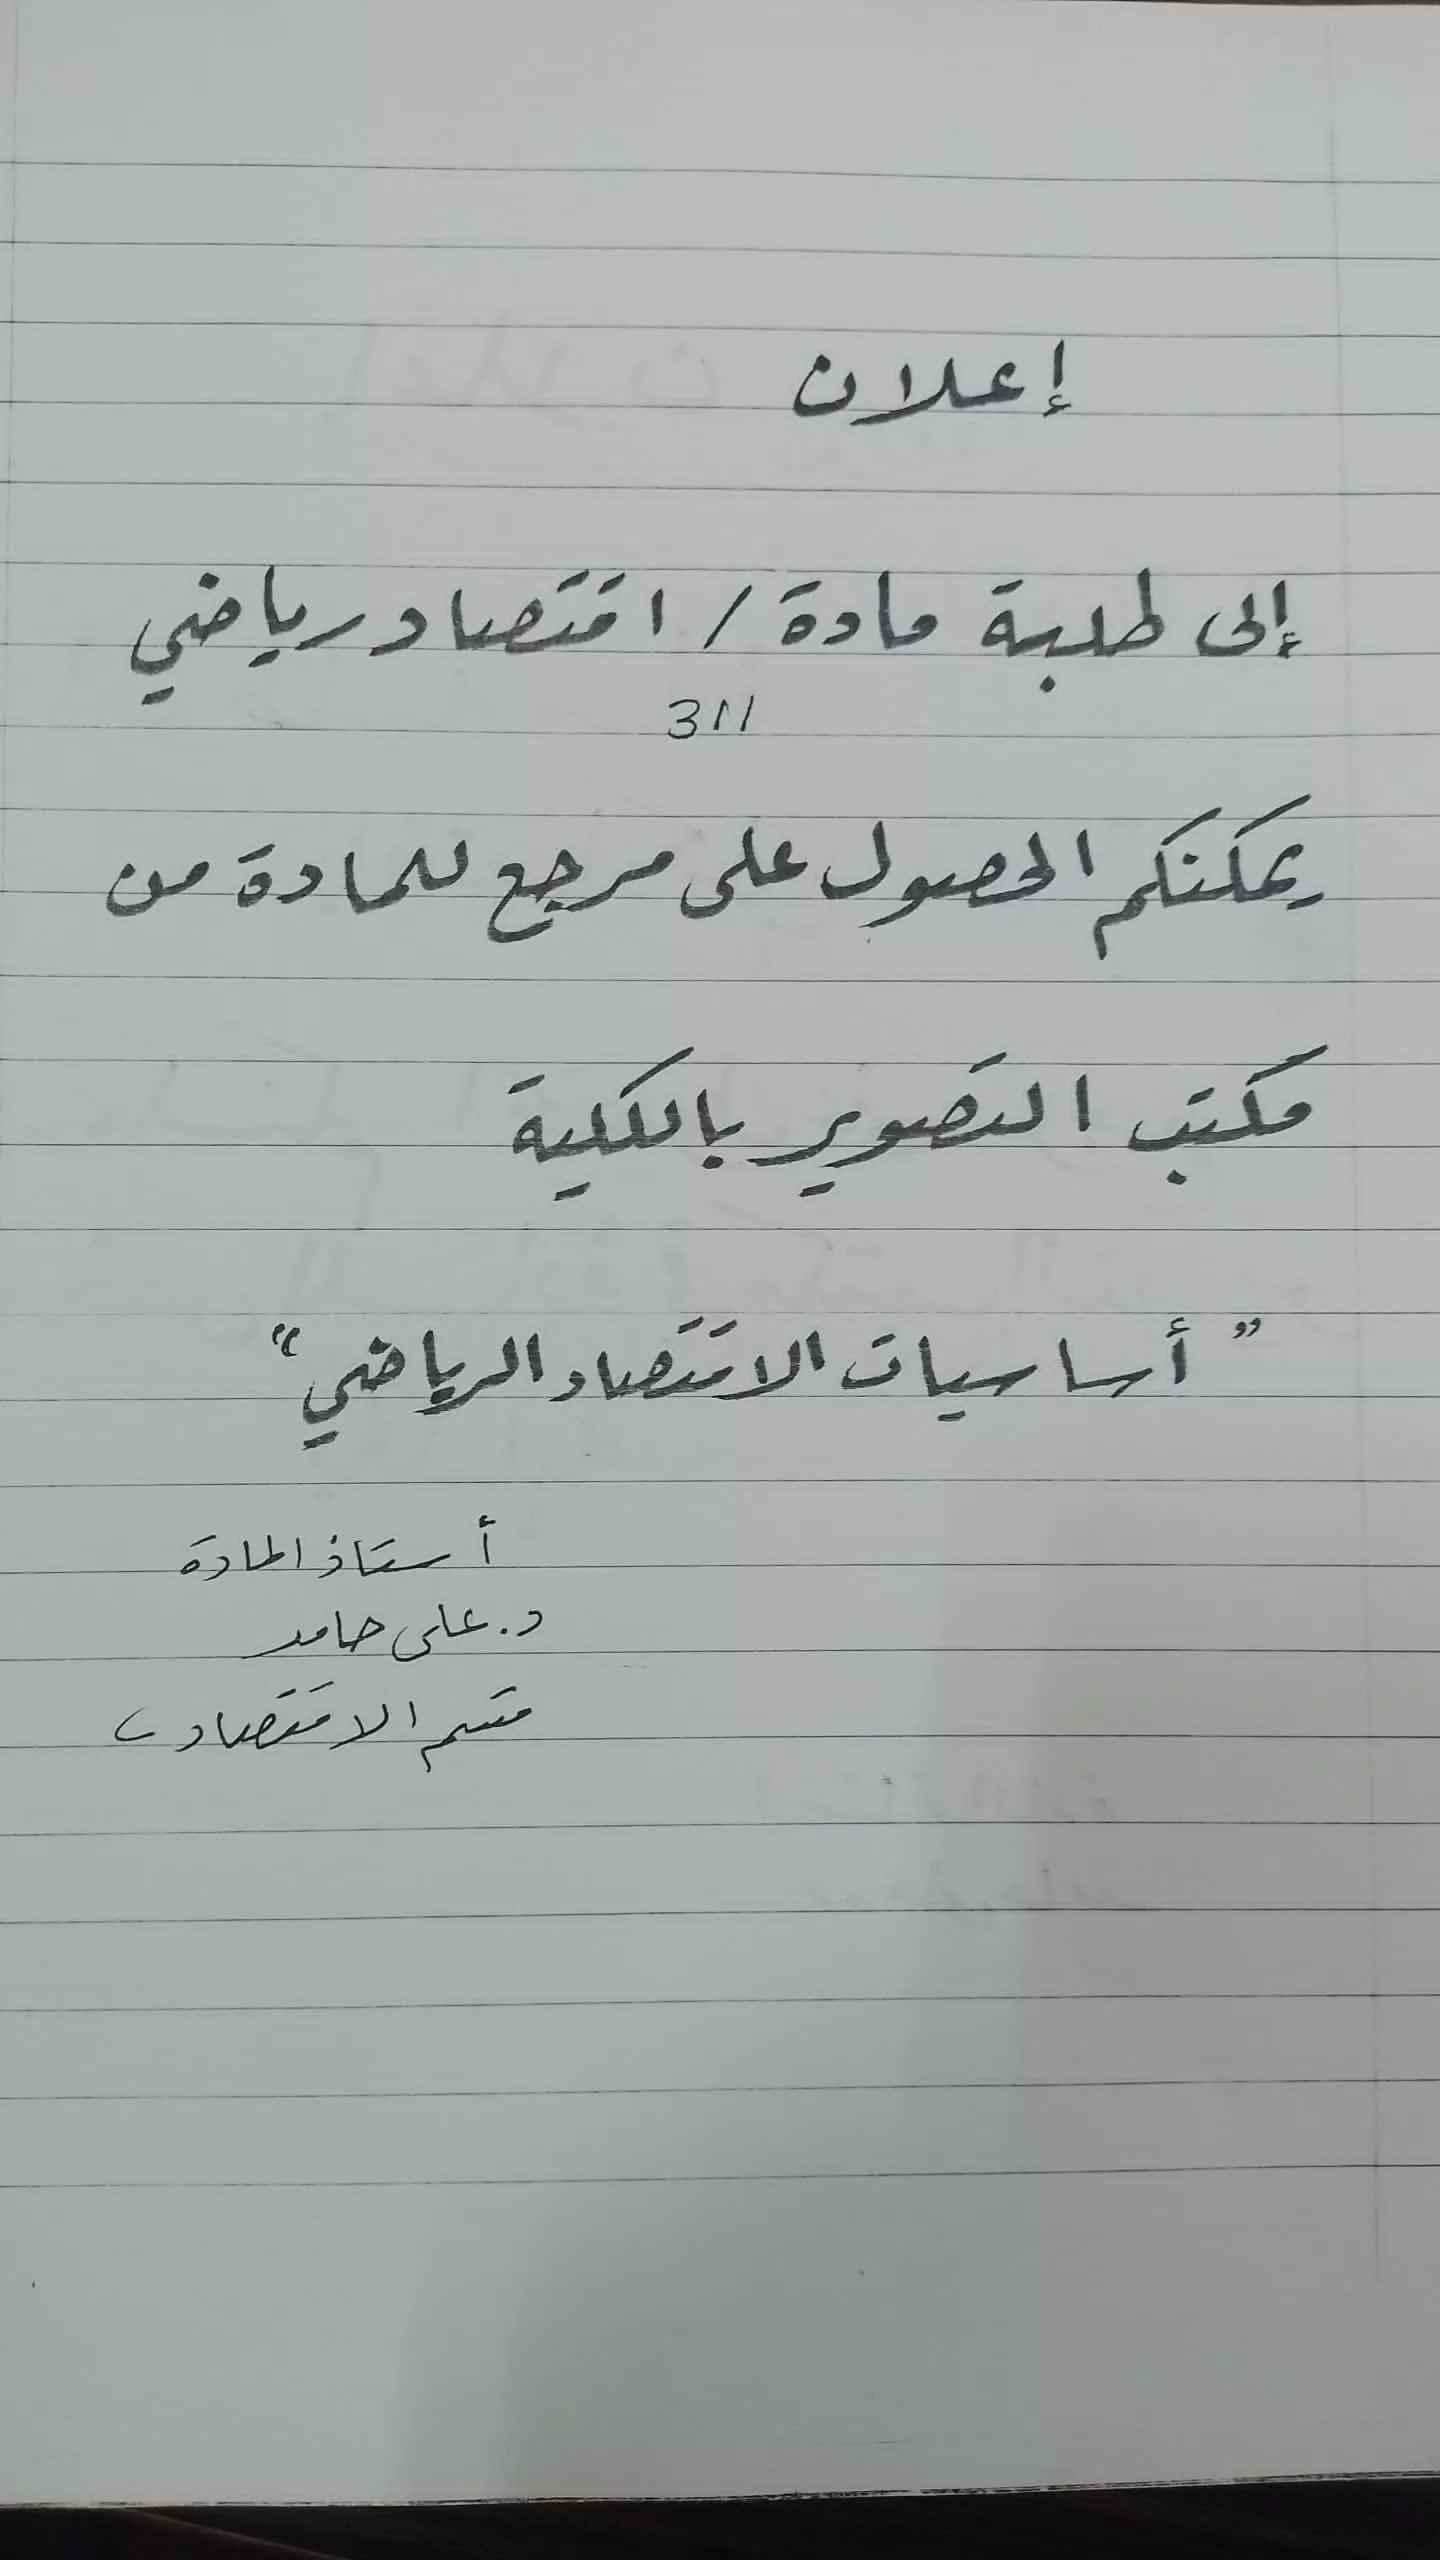 إعلان
إلى طلبة مادة / اقتصاد رياضي
311
يمكنكم الحصول على مرجع للمادة من
مكتب التصوير بالكلية
" أساسيات الاقتصاد الرياضي "
أستاذ المادة
د. على حامد
قسم الاقتصاد